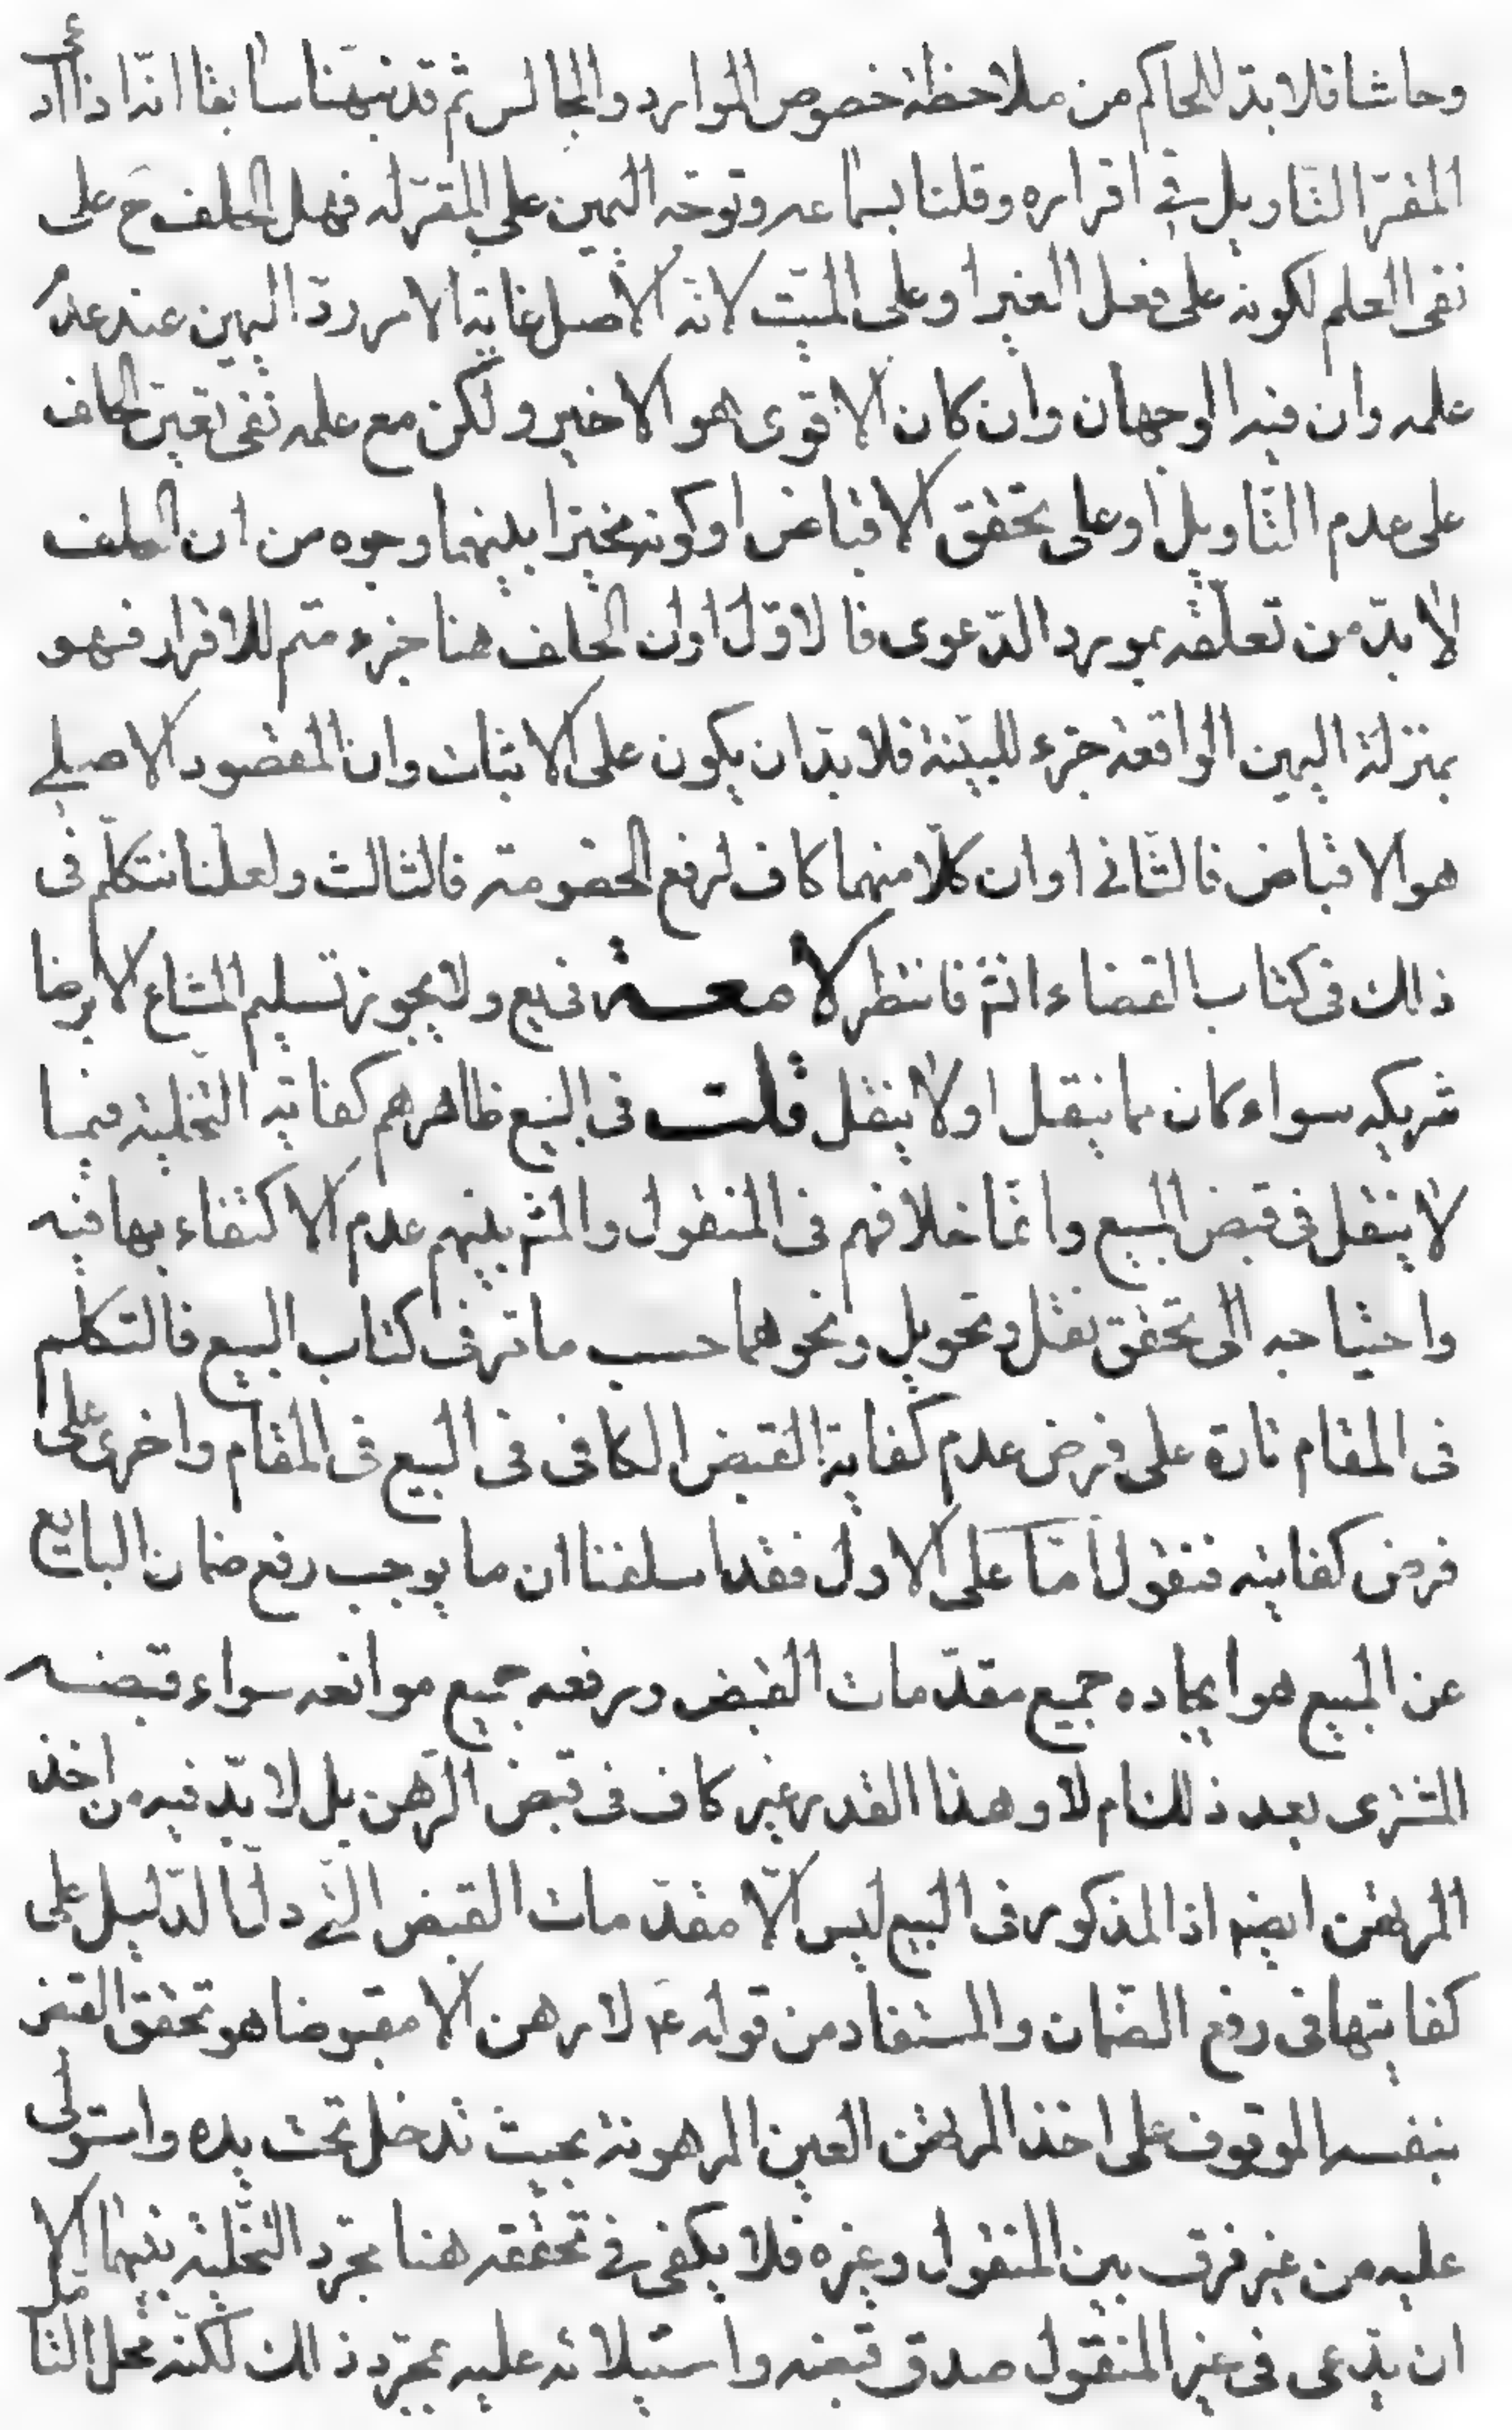 وحاشا فلا بدّ للحاكم من ملاحظة خصوص الموارد والمجالس ثم قد نبهنا سابقا انه اذا ادعى
المقرّ التاويل في اقراره وقلنا بسماعه وتوجّه اليمين على المقرّ له فهل الحلف ح على
نفى العلم لكونه على فعل الغير او على البت لانه الاصل غاية الامر ردّ اليمين عند عدم
علمه وان فيه الوجهان وان كان الاقوى هو الاخير ولكن مع علمه نفى تعين الحلف
على عدم التاويل او على تحقق الاقباض او كونه مخيّرا بينهما وجوه من ان الحلف
لا بدّ من تعلّقه بمورد الدّعوى فالاوّل او ان الحلف هنا جزء متمم للاقرار فهو
بمنزلة اليمين الواقعة جزء للبيّنة فلا بدّ ان يكون على الاثبات وان المقصود الاصلي
هو الاقباض فالثاني او ان كلّا منهما كاف لرفع الخصومة فالثالث ولعلّنا نتكلّم فى
ذلك فى كتاب القضاء انش فانتظر لامعة فى يع ولا يجوز تسليم المشاع الا برضا
شريكه سواء كان مما ينقل او لا ينقل قلت فى البيع ظاهرهم كفاية التخلية فيما
لا ينقل فى قبض المبيع وانّما خلافهم فى المنقول والمش بينهم عدم الاكتفاء بها فيه
واحتياجه الى تحقق نقل وتحويل ونحوهما حسب ما تر فى كتاب البيع فالتكلم
فى المقام تارة على فرض عدم كفاية القبض الكافى فى البيع فى المقام واخرى على
فرض كفايته فنقول امّا على الاول فقد اسلفنا ان ما يوجب رفع ضمان البايع
عن المبيع هو ايجاده جميع مقدّمات القبض ورفعه جميع موانعه سواء قبضه
المشترى بعد ذلك ام لا وهذا القدر غير كاف فى قبض الرّهن بل لا بدّ فيه من اخذ
المرتهن ايضم اذ المذكور فى البيع ليس الّا مقدّمات القبض الّتي دلّ الدّليل على
كفايتها فى رفع الضّمان والمستفاد من قوله ع لا رهن الا مقبوضا هو تحقق القبض
بنفسه الموقوف على اخذ المرتهن العين المرهونة بحيث تدخل تحت يده واستولى
عليه من غير فرق بين المنقول وغيره فلا يكفى في تحققه هنا مجرّد التخلية بينهما الا
ان يدّعى فى غير المنقول صدق قبضه واستيلائه عليه بمجرّد ذلك لكنّه محلّ التامّل